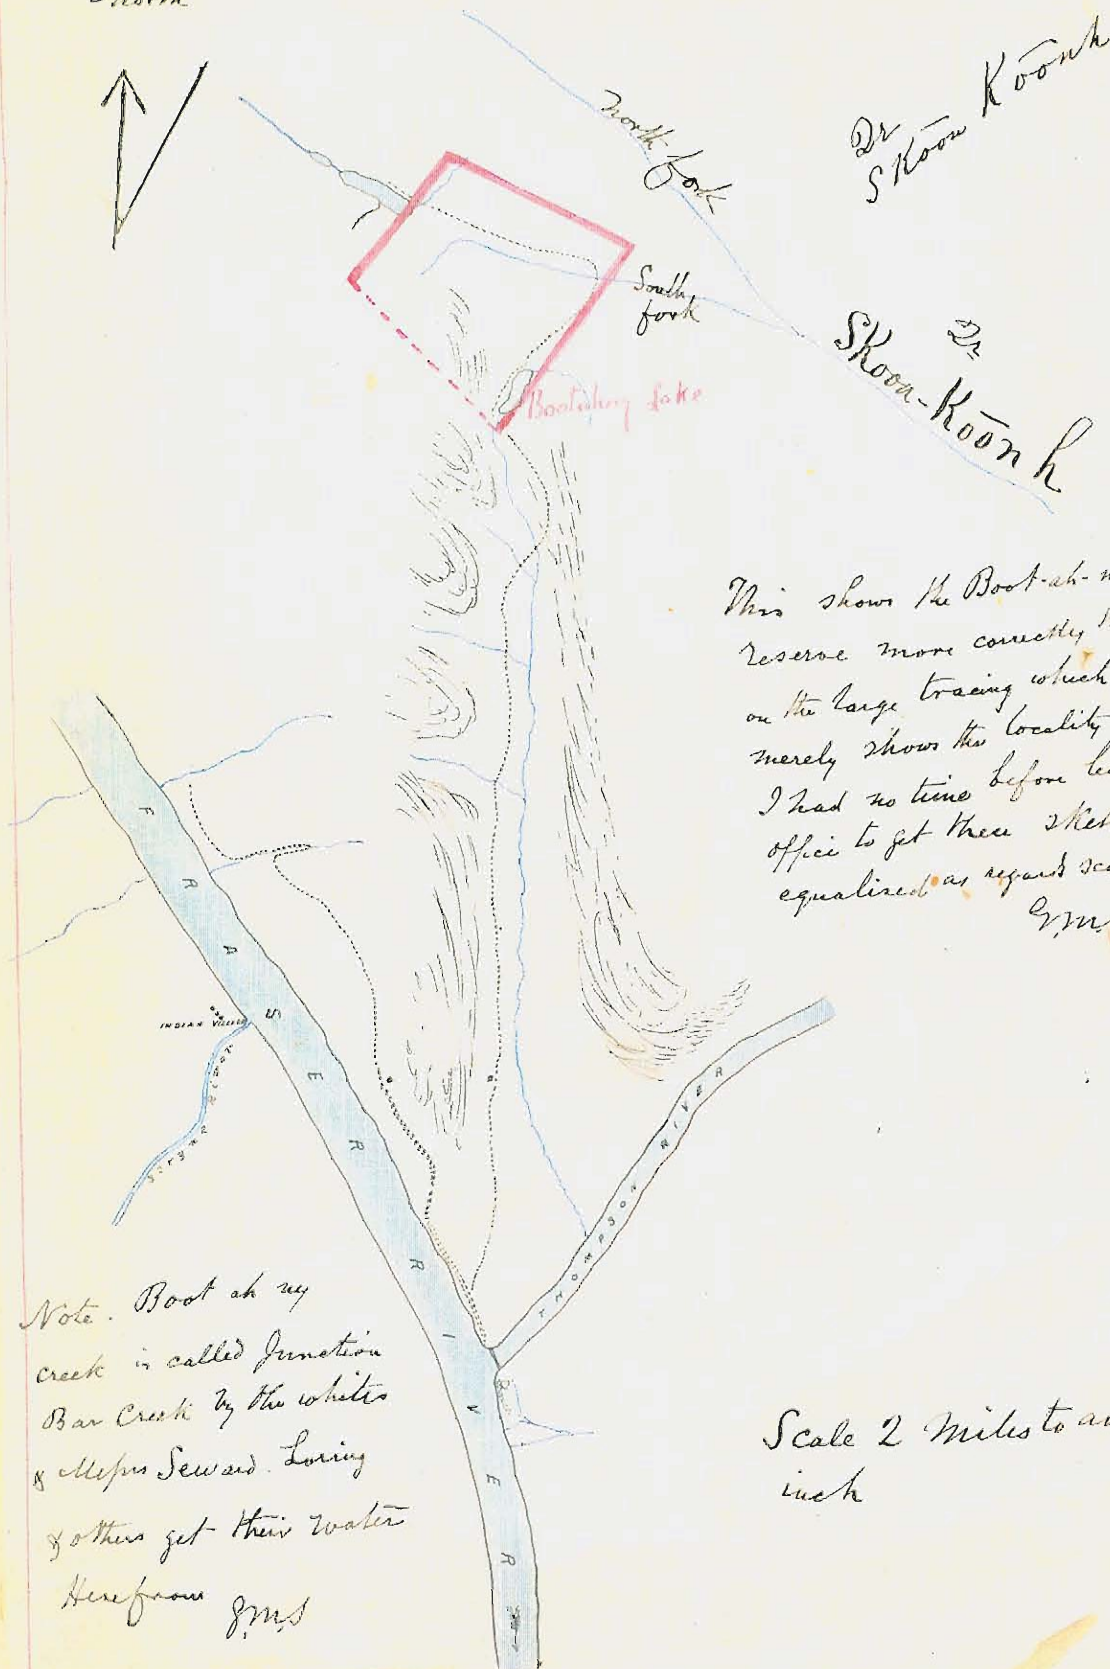 North
North fork
Dr
Skōōn Kōōnh
South
fork
Dr
Skoon-Kōōn h
Bootahny Lake
This shows the Boot-ah-n
reserve more correctly
on the large tracing which
merely shows the locality
I had no time before le
office to get these sket
equalized as regards sca
G.M.
FRASER RIVER
INDIAN VILLAGE
THOMPSON RIVER
Note. Boot ah ny
creek is called Junction
Bar Creek by the whites
& Messrs Seward. Loring
& others get their water
Herefrom
G.M.S
Scale 2 Miles to an
inch